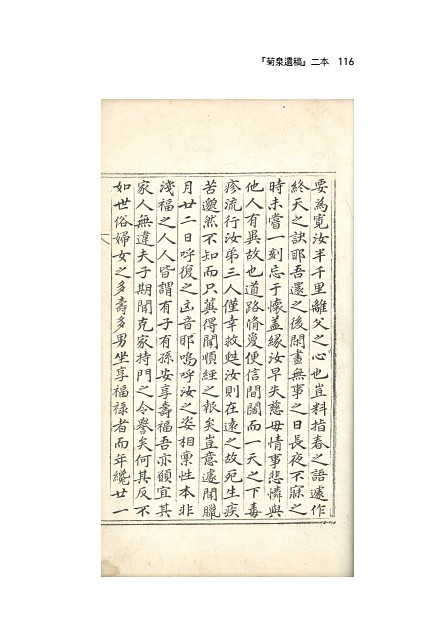 『菊泉遺稿』二本 116
要為寬汝半千里離父之心也豈料指春之語遽作
終天之訣耶吾還之後閑晝無事之日長夜不寐之
時未嘗一刻忘于懷盖緣汝早失慈母情事悲憐與
他人有異故也道路脩夐便信闊而一天之下毒
疹流行汝弟三人僅幸救甦汝則在遠之故死生疾
苦邈然不知而只冀得聞順經之報矣豈意遽聞臘
月廿二日呼復之凶音耶嗚呼汝之姿相稟性本非
淺福之人人皆謂有子有孫安享壽福吾亦頗宜其
家人無違夫子期聞克家持門之令譽矣何其反不
如世俗婦女之多壽多男坐享福祿者而年纔廿一